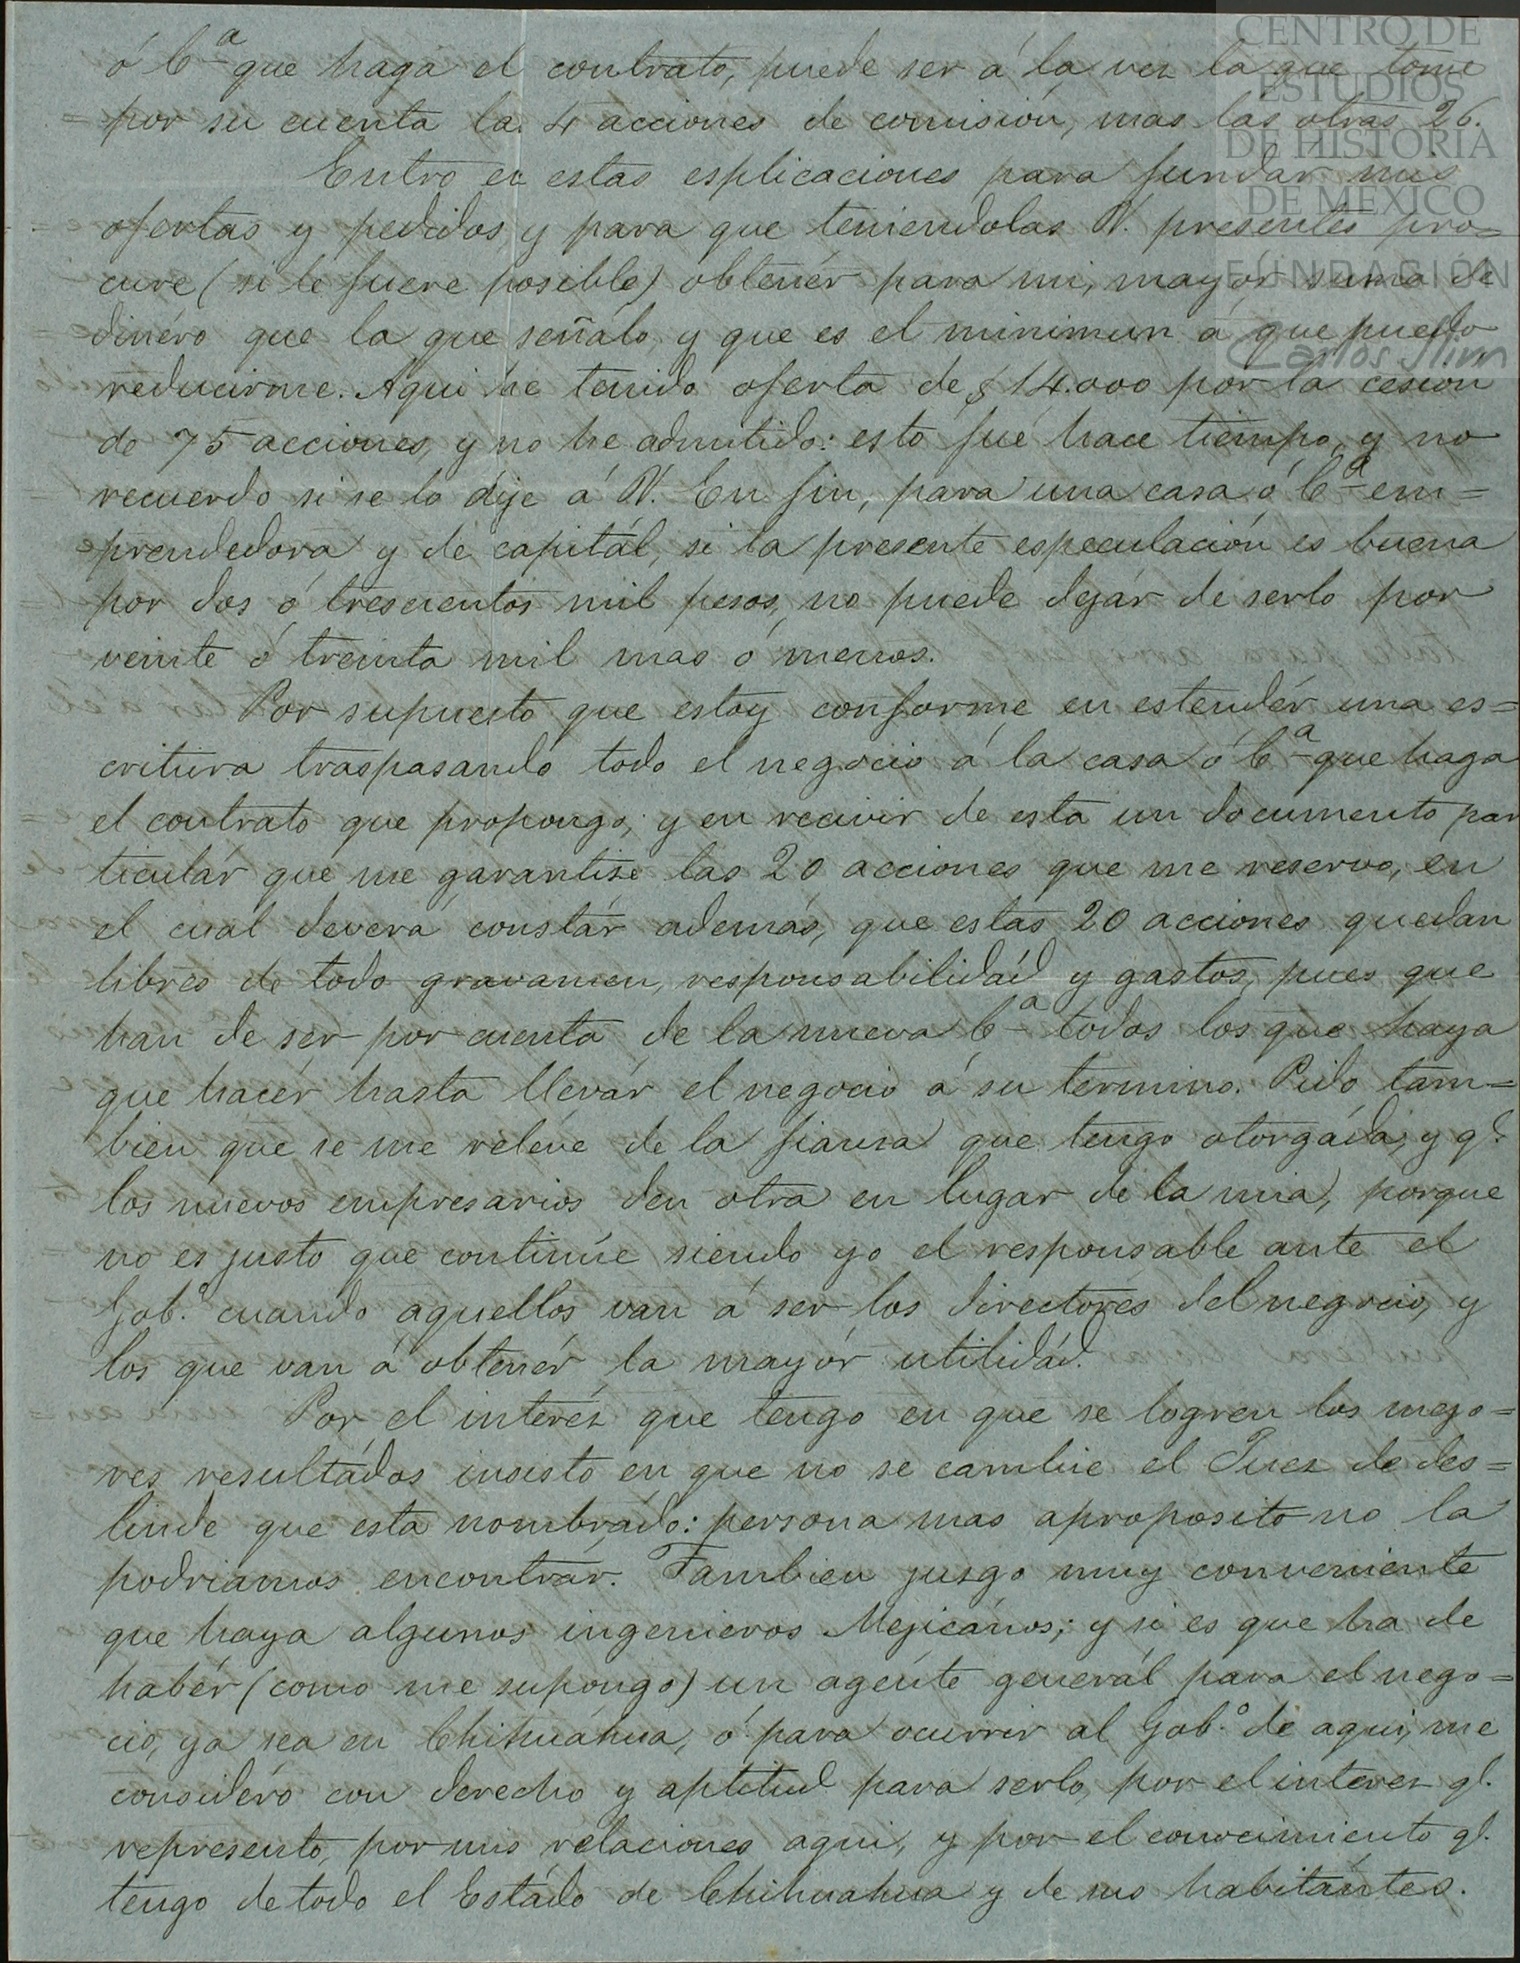 CENTRO DE
ESTUDIOS
DE HISTORIA
DE MEXICO
FUNDACIÓN
Carlos Slim
ó Cª que haga el contrato, puede ser á la vez la que tome
por su cuenta la 4 acciones de comisión, mas las otras 26.
Entro en estas esplicaciones para fundar mis
ofertas y pedidos y para que teniendolas V. presentes pro=
cure (si le fuere posible) obtenér para mi, mayor suma de
dinéro que la que señalo, y que es el minimun á que puedo
reducirme. Aqui he tenido oferta de $14.000 por la cesion
de 75 acciones, y no he admitido: esto fué hace tiempo, y no
recuerdo si se lo dije á V. En fin, para una casa ó Cª em=
prendedora y de capitál, si la presente especulación es buena
por dos ó trescientos mil pesos, no puede dejár de serlo por
veinte ó treinta mil mas ó menos.
Por supuesto que estoy conforme en estendér una es=
critura traspasando todo el negocio á la casa ó Cª que haga
el contrato que propongo; y en recivir de esta un documento par
ticulár que me garantise las 20 acciones que me reservo, en
el cual deverá constár además, que estas 20 acciones quedan
libres de todo gravamen, responsabilidád y gastos, pues que
han de ser por cuenta de la nueva Cª todos los que haya
que hacér hasta llevár el negocio á su termino. Pido tam=
bien que se me releve de la fiansa que tengo otorgáda, y q.
los nuevos empresarios den otra en lugar de la mia, porque
no es justo que continúe siendo yo el responsable ante el
Gob.º cuando aquellos van á ser los directores del negocio, y
los que van á obtenér la mayór utilidád.
Por el interéz que tengo en que se logren los mejo=
res resultádos insisto en que no se cambie el Juez de des=
linde que esta nombrádo: persona mas aproposito no la
podriamos encontrár. Tambien jusgo muy conveniente
que haya algunos ingenieros Mejicános; y si es que ha de
habér (como me supongo) un agente generál para el nego=
cio, ya sea en Chihuáhua, ó para ocurrir al Gob.º de aqui, me
considéro con derecho y aptitud para serlo, por el interez q.
represento, por mis relaciones aqui, y por el conocimiento q.
tengo de todo el Estádo de Chihuahua y de sus habitántes.